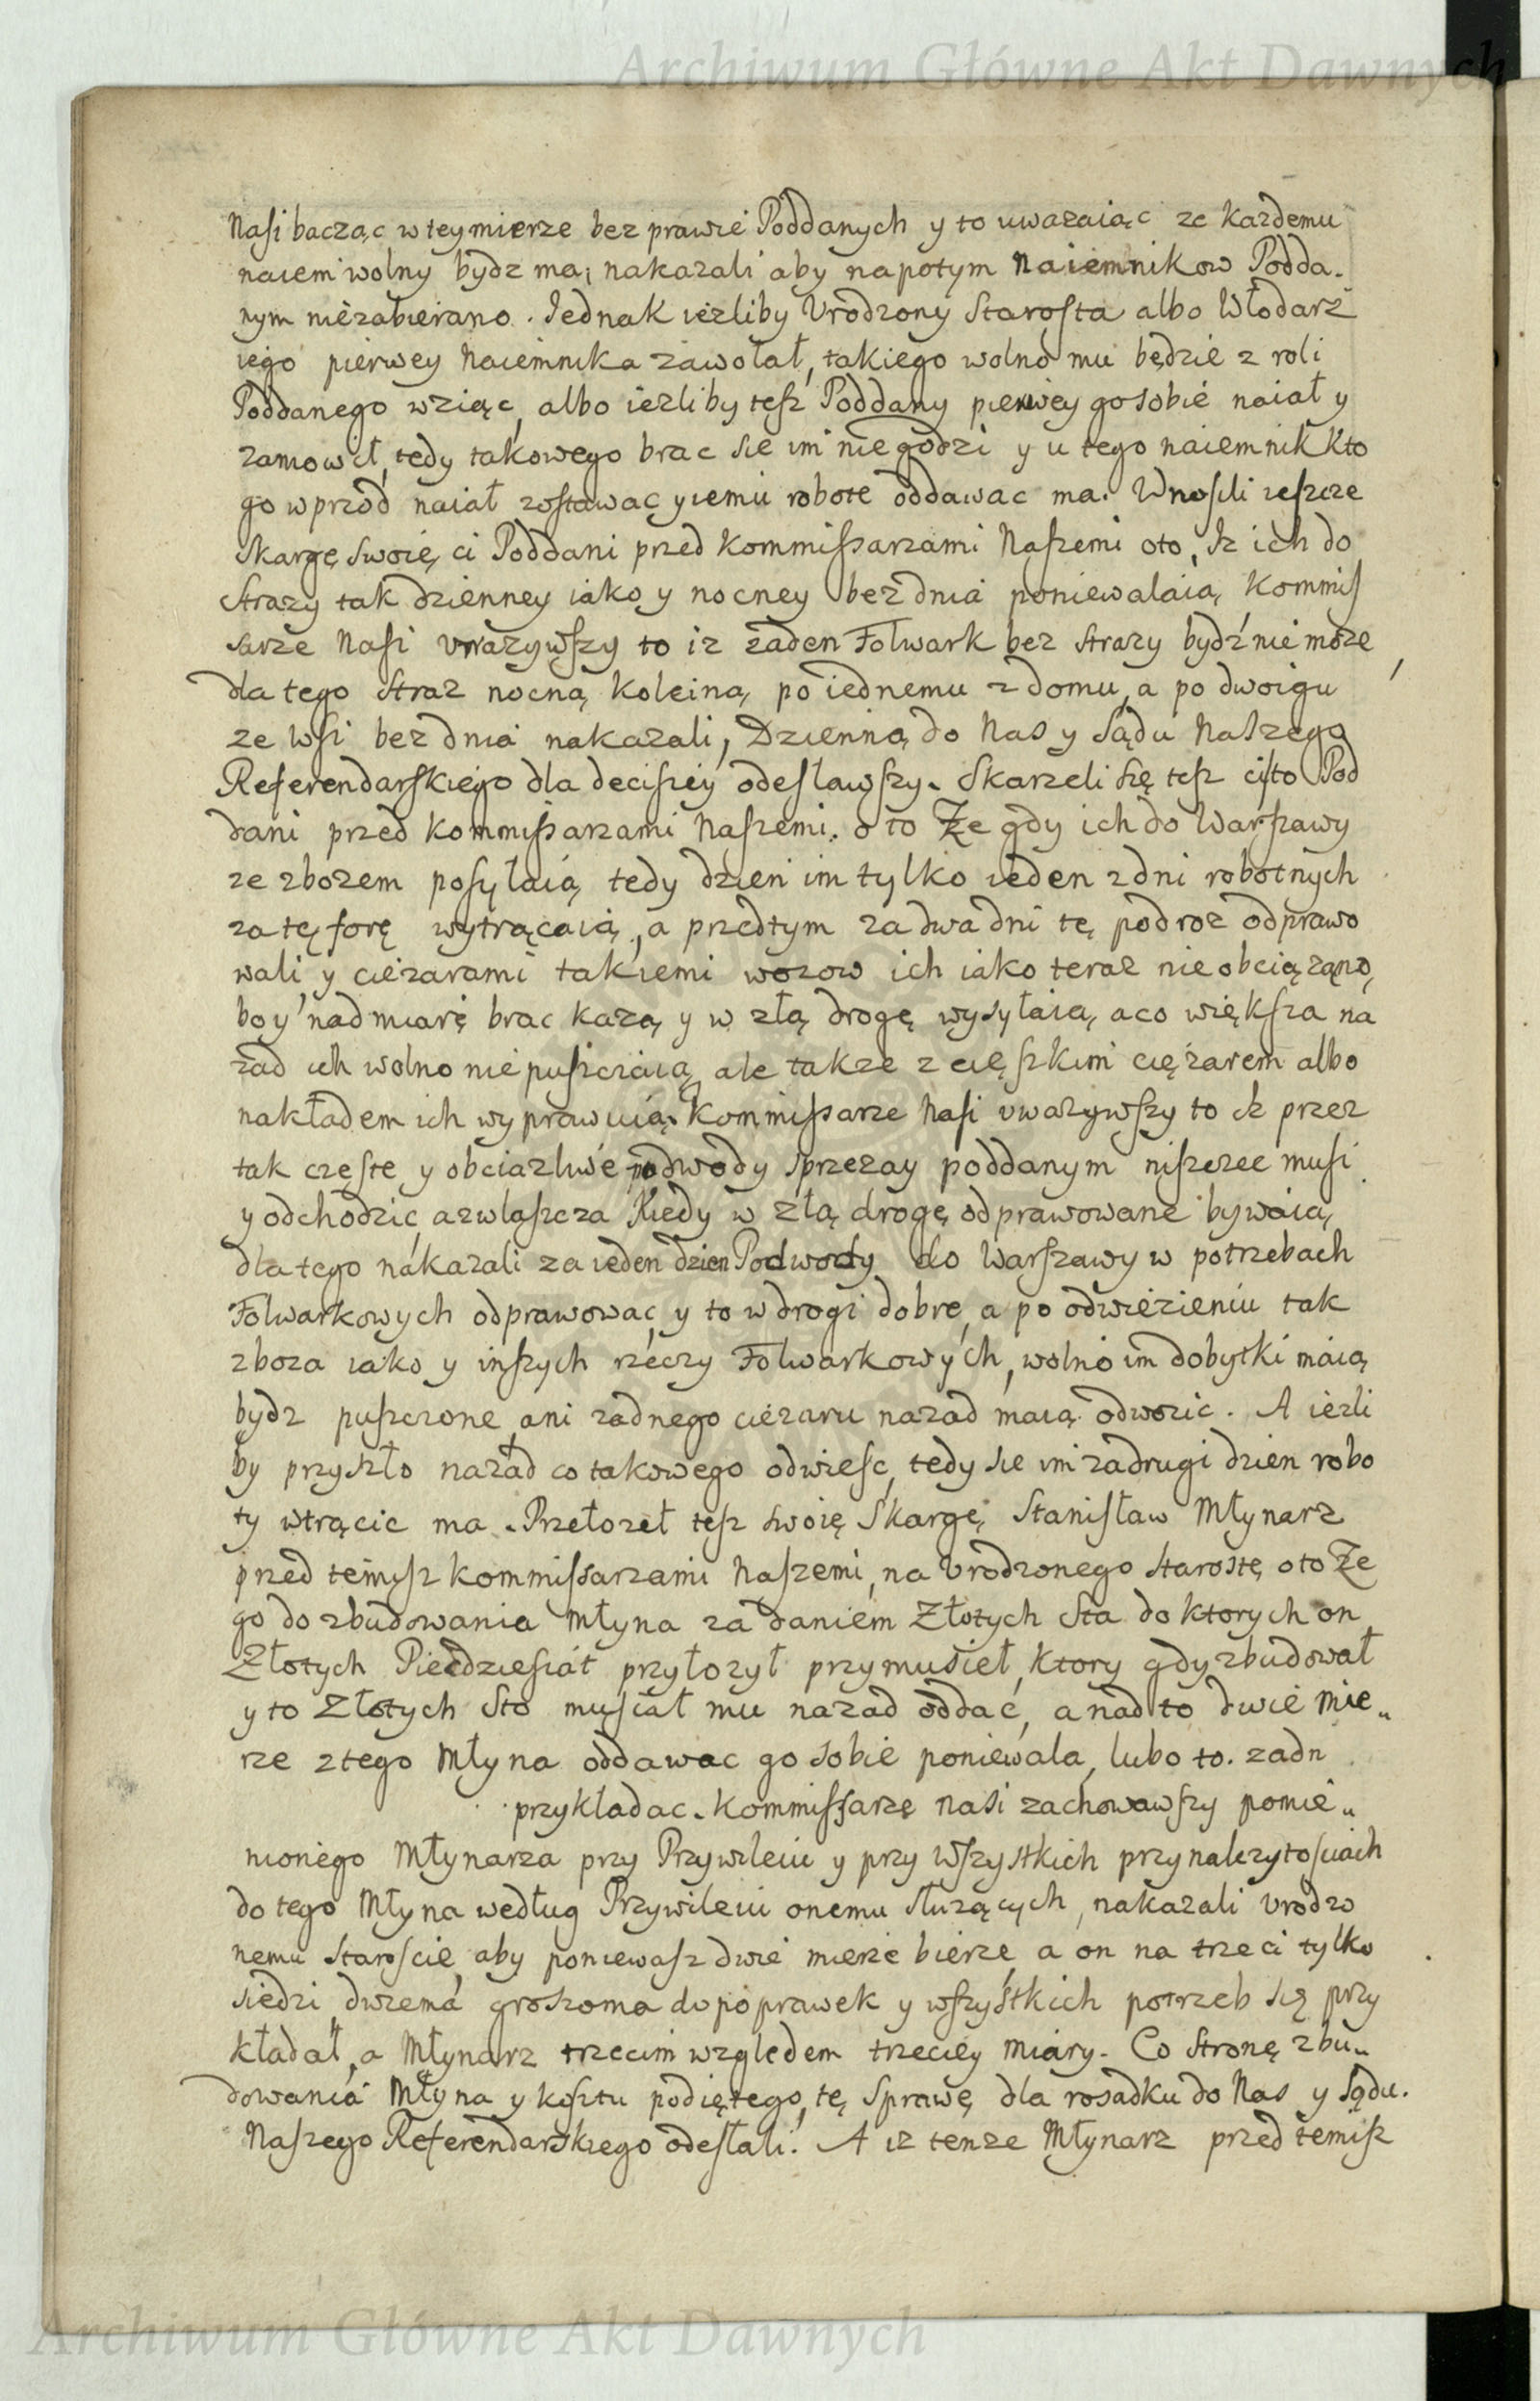 Archiwum Główne Akt Dawnych
Nasi bacząc w tey mierze bez prawie Poddanych y to uwazaiąc ze kazdemu
naiem wolny bydz ma, nakazali aby napotym Naiemnikow Podda-
nym niezabierano. Jednak iezliby Vrodzony Starosta albo Włodarz
iego pierwey Naiemnika zawołał, takiego wolno mu będzie z roli
Poddanego wziąc, albo iezliby tesz Poddany pierwey go sobie naiał y
zamowił, tedy takowego brac sie im nie godzi y u tego naiemnik kto
go wprzod naiał zostawac y iemu robote oddawac ma. Wnosili ieszcze
Skargę swoię ci Poddani przed Kommissarzami Naszemi oto, Jz ich do
Strazy tak dzienney iako y nocney bez dnia poniewalaią, Kommis
sarze Nasi vwazywszy to iz zaden Folwark bez strazy bydz nie moze,
dla tego Straz nocną koleiną, po iednemu z domu, a po dwoigu
ze wsi bez dnia nakazali, Dzienną do Nas y Sądu Naszego
Referendarskiego dla deciziey odesławszy. Skarzeli się tesz cisto Pod
dani przed Kommissarzami Naszemi. o to Ze gdy ich do Warszawy
ze zbozem posyłaią, tedy dzien im tylko ieden z dni robotnych
za tę forę wytrącaią, a przedtym za dwa dni tę podroz odprawo
wali, y ciezarami takiemi wozow ich iako teraz nie obciązano,
bo y nad miarę brac kazą, y w złą drogę wysyłaią, a co większa na
zad ich wolno nie puszczaią, ale takze z cięszkim cięzarem albo
nakładem ich wyprawuią. Kommissarze Nasi vwazywszy to iz przez
tak częste y obciazliwe podwody sprzezay poddanym niszczec musi
y odchodzic, a zwłaszcza kiedy w złą drogę odprawowane bywaią,
dla tego nakazali za ieden dzien Podwody do Warszawy w potrzebach
Folwarkowych odprawowac, y to w drogi dobre, a po odwiezieniu tak
zboza iako y inszych rzeczy Folwarkowych, wolno im dobytki maią
bydz puszczone, ani zadnego ciezaru nazad maią odwozic. A iezli
by przyszło nazad co takowego odwiesc, tedy sie im za drugi dzien robo
ty wtrącic ma. Przełozeł tesz swoię Skargę Stanisław Młynarz
przed temisz Kommissarzami Naszemi, na Vrodzonego Starostę oto Ze
go do zbudowania Młyna za daniem Złotych Sta do ktorych on
Złotych Piecdziesiat przyłozył przymusieł, ktory gdy zbudował
y to Złotych Sto musiał mu nazad oddac, a nadto dwie Mie„
rze z tego Młyna oddawac go sobie poniewala, lubo to. zadn
przykladac. Kommissarze Nasi zachowawszy pomie„
nionego Młynarza przy Przywileiu y przy wszystkich przynalezytosciach
do tego Młyna według Przywileiu onemu słuzących, nakazali Vrodzo
nemu Staroscie, aby poniewasz dwie mierze bierze, a on na trzeci tylko
siedzi, dwiema groszoma do poprawek y wszystkich potrzeb się przy
kładał, a Młynarz trzecim względem trzeciey miary. Co Stronę zbu„
dowania Młyna y kosztu podiętego, tę Sprawę dla rosadku do Nas y Sądu.
Naszego Referendarskiego odesłali. A iz tenze Młynarz przed temisz
Archiwum Główne Akt Dawnych